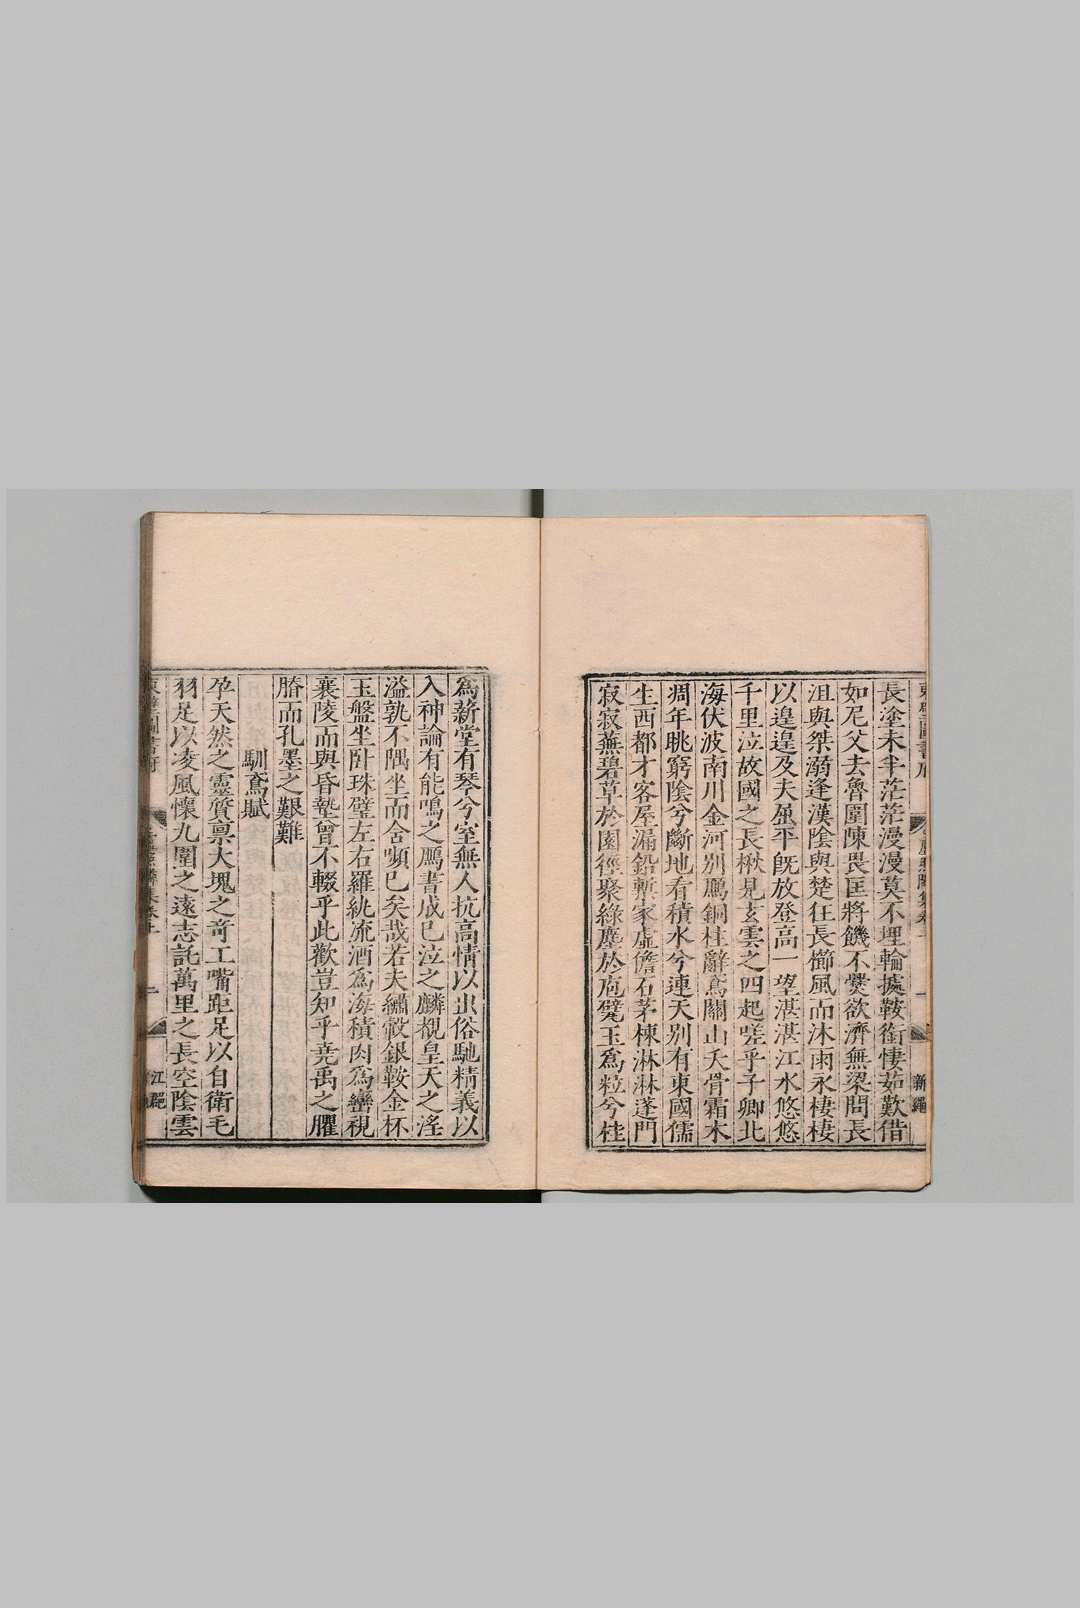 長塗未半茫茫漫漫莫不埋輪據鞍銜悽茹歎借
如尼父去魯圍陳畏匡將饑不爨欲濟無梁問長
沮與桀溺逢漢陰與楚狂長櫛風而沐雨永棲棲
以遑遑及夫屈平旣放登高一望湛湛江水悠悠
千里泣故國之長楸見玄雲之四起嗟乎子卿北
海伏波南川金河別鴈銅柱辭鳶關山夭骨霜木
凋年眺窮陰兮斷地看積水兮連天別有東國儒
生西都才客屋漏鉛槧家虛儋石茅棟淋淋蓬門
寂寂蕪碧草於園徑聚綠塵於庖甓玉爲粒兮桂
爲薪堂有琴兮室無人抗高情以出俗馳精義以
入神論有能鳴之鴈書成已泣之麟覩皇天之淫
溢孰不隅坐而含嚬已矣哉若夫繡轂銀鞍金杯
玉盤坐卧珠璧左右羅紈流酒爲海積肉爲巒視
襄陵而與昏墊曾不輟乎此歡豈知乎堯禹之臞
膌而孔墨之艱難
馴鳶賦
孕天然之靈質禀大塊之奇工嘴距足以自衛毛
羽足以凌風懷九圍之遠志託萬里之長空陰雲